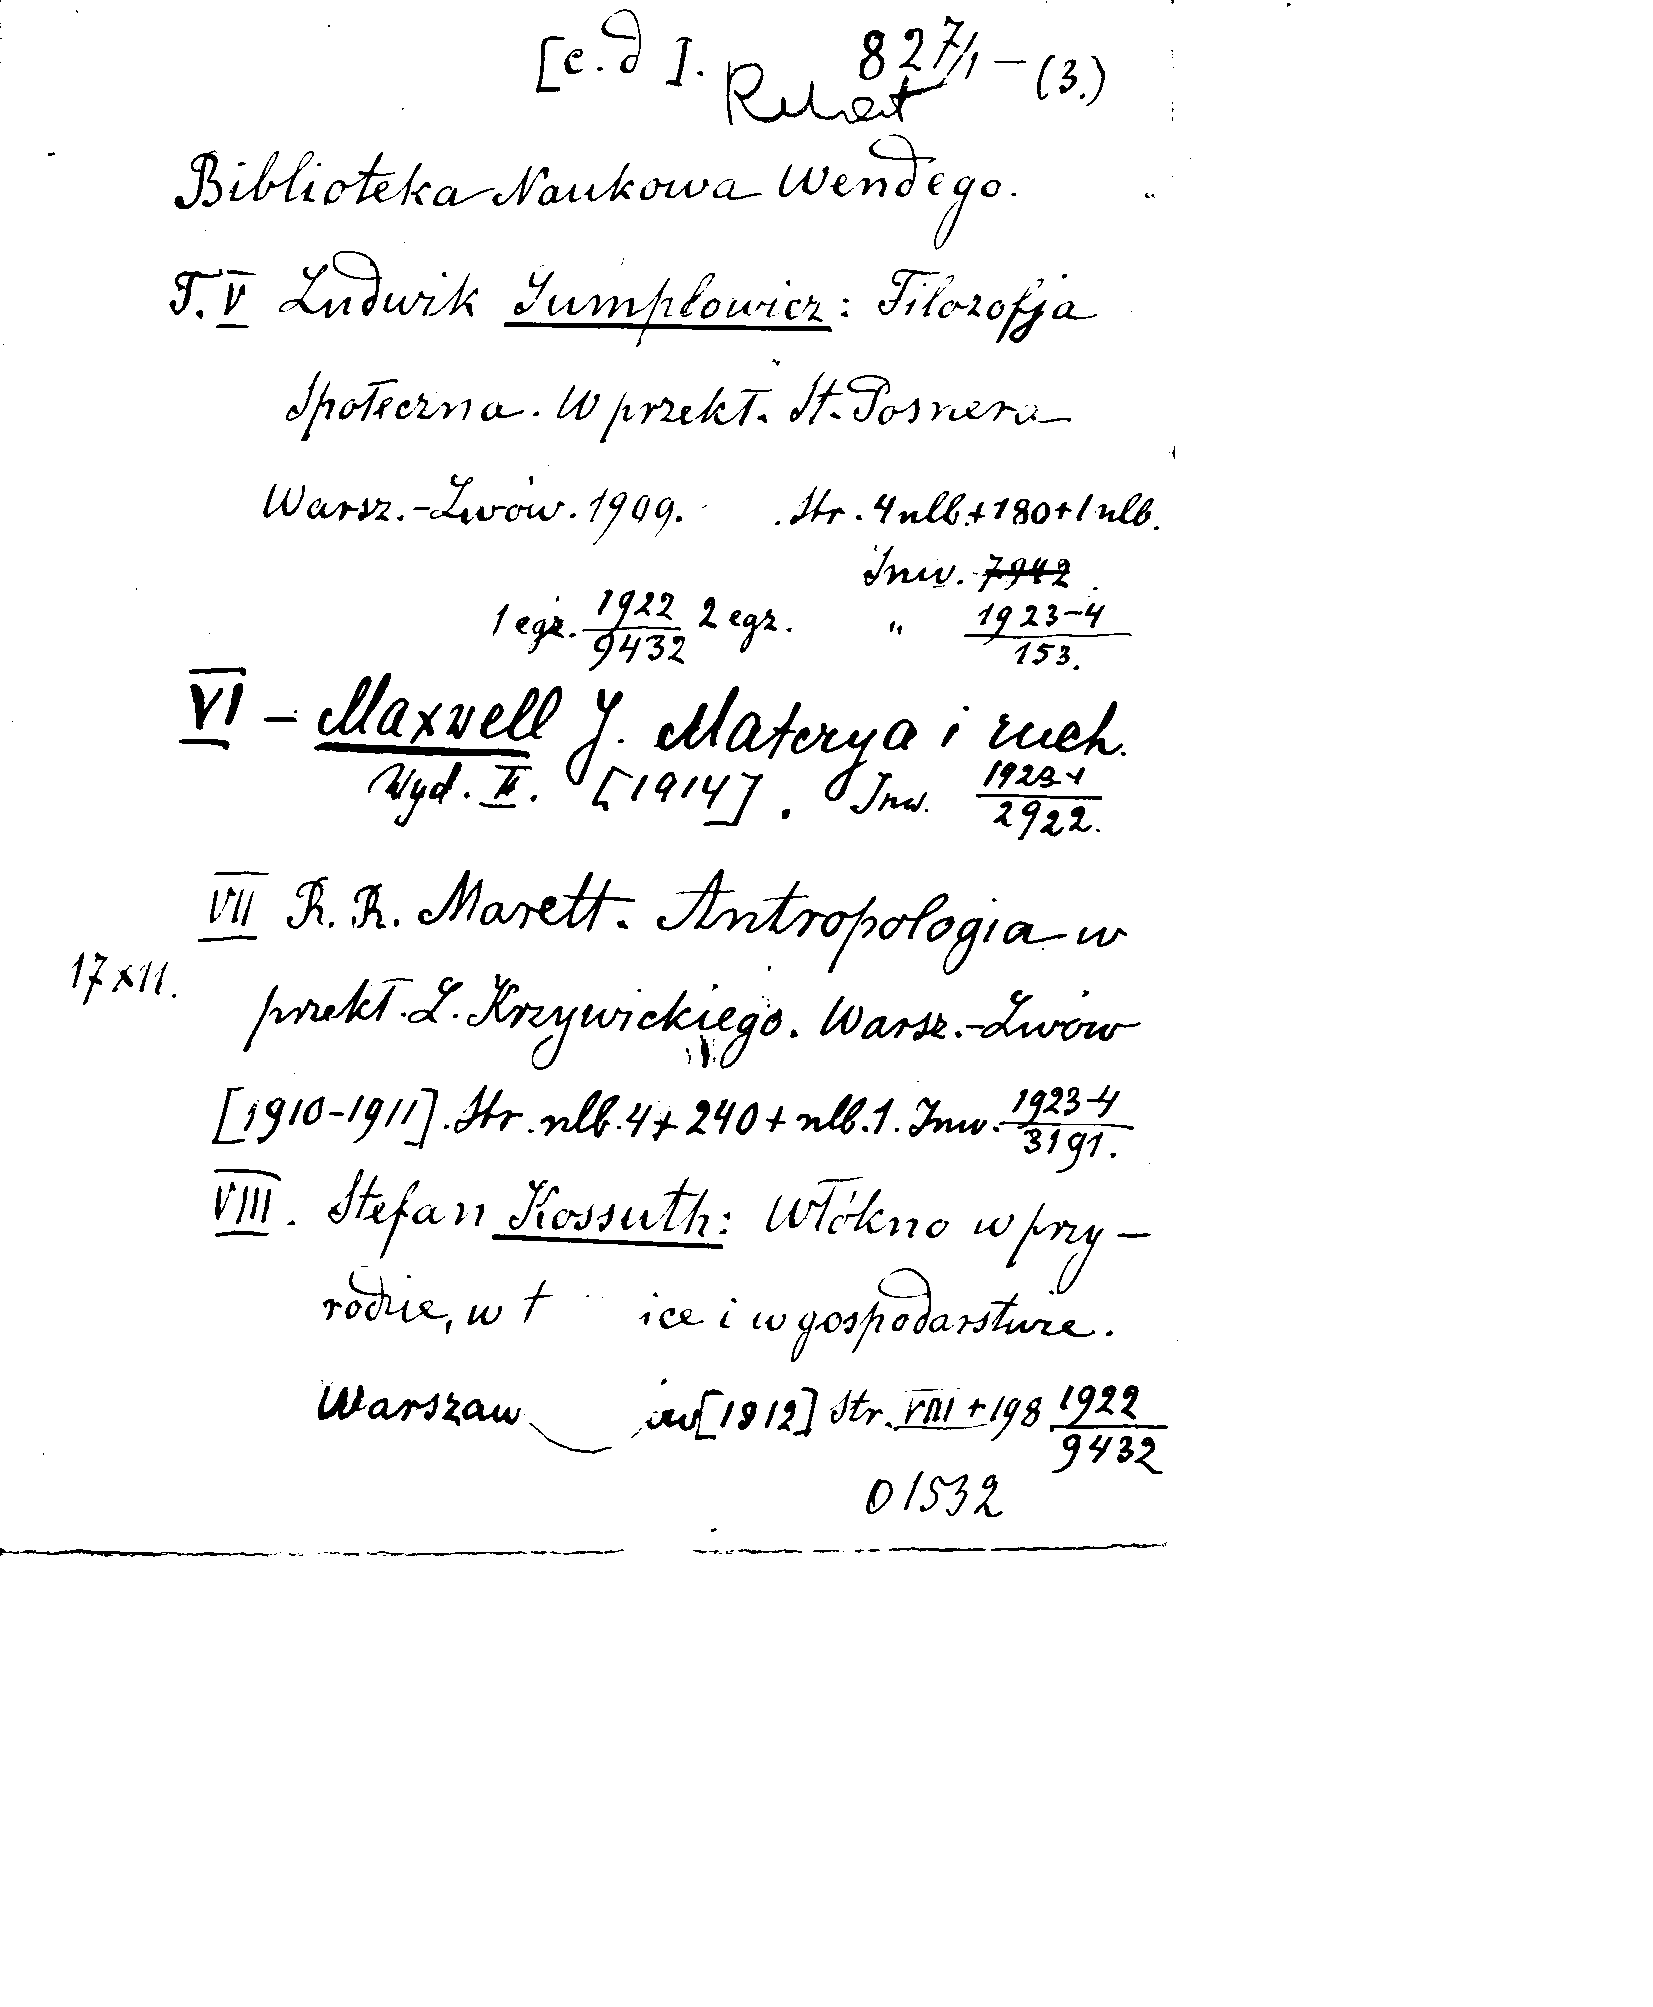 [c.d]. 827/1 – (3.)
Biblioteka Naukowa Wendego.
T. V Ludwik Gumplowicz: Filozofja
Społeczna. W przekł. St. Posnera
Warsz.-Lwów. 1909. Str. 4 nlb. + 180 + 1 nlb.
Inw. 7942
1 egz. 1922/9432 2 egz. " 1923-4/153.
VI – Maxwell J. Materya i ruch.
Wyd. II. [1914]. Inw. 1923-4/2922.
VII R. R. Marett. Antropologia w
17 XII.
przekł. L. Krzywickiego. Warsz.-Lwów
[1910-1911]. Str. nlb. 4 + 240 + nlb. 1. Inw. 1923-4/3191.
VIII. Stefan Kossuth: Włókno w przy-
rodzie, w t ice i w gospodarstwie.
Warszaw ów [1912] Str. VIII + 198 1922/9432
01532